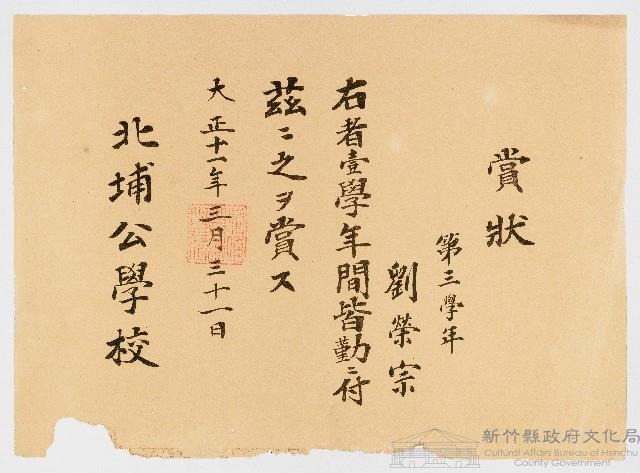 賞狀
第三學年
劉榮宗
右者壹學年間皆勤ニ付
茲ニ之ヲ賞ス
大正十一年三月三十一日
北埔公學校
新竹縣政府文化局
Cultural Affairs Bureau of Hsinchu
County Government